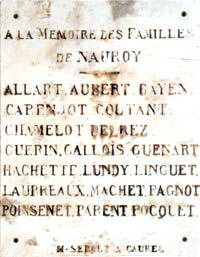 A LA MEMOIRE DES FAMILLES
DE NAUROY
ALLART. AUBERT. BAYEN.
CAPENJOT COUTANT.
CHAMELOT DELREZ
GUERIN. GALLOIS. GUENART
HACHETTE. LUNDY. LINGUET.
LAUPREAUX. MACHET. PAGNOT
POINSENET. PARENT POCQUET.
A CAUREL